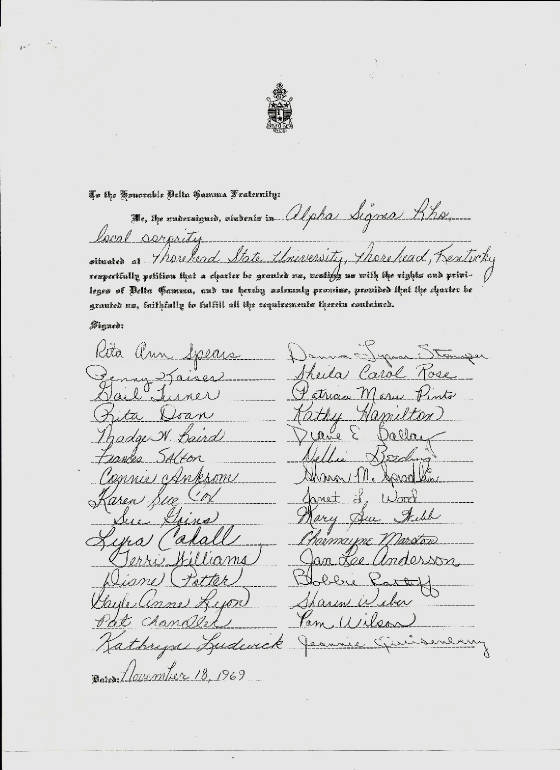 To the Honorable Delta Gamma Fraternity:
We, the undersigned, students in Alpha Sigma Rho,
local sorority
situated at Morehead State University, Morehead, Kentucky
respectfully petition that a charter be granted us, vesting us with the rights and privi-
leges of Delta Gamma, and we hereby solemnly promise, provided that the charter be
granted us, faithfully to fulfill all the requirements therein contained.
Signed:
Rita Ann Spears
Penny Kaiser
Gail Turner
Rita Doan
Madge W. Baird
Frances Salton
Connie Ankrom
Karen Sue Cox
Sue
Lyra Cahall
Terri Williams
Diane Potter
Gayle Anne Lyon
Pat Chandler
Kathryn Ludwick
Donna Lynn Stamper
Sheila Carol Rose
Patricia Marie Pinto
Kathy Hamilton
Diane E. Dallay
Nellie
Sharon M.
Janet L. Wood
Mary Sue Webb
Charmayne Marston
Jan Lee Anderson
Bobbie
Sharen Weber
Pam Wilson
Jeannie Quisenberry
Dated: November 18, 1969